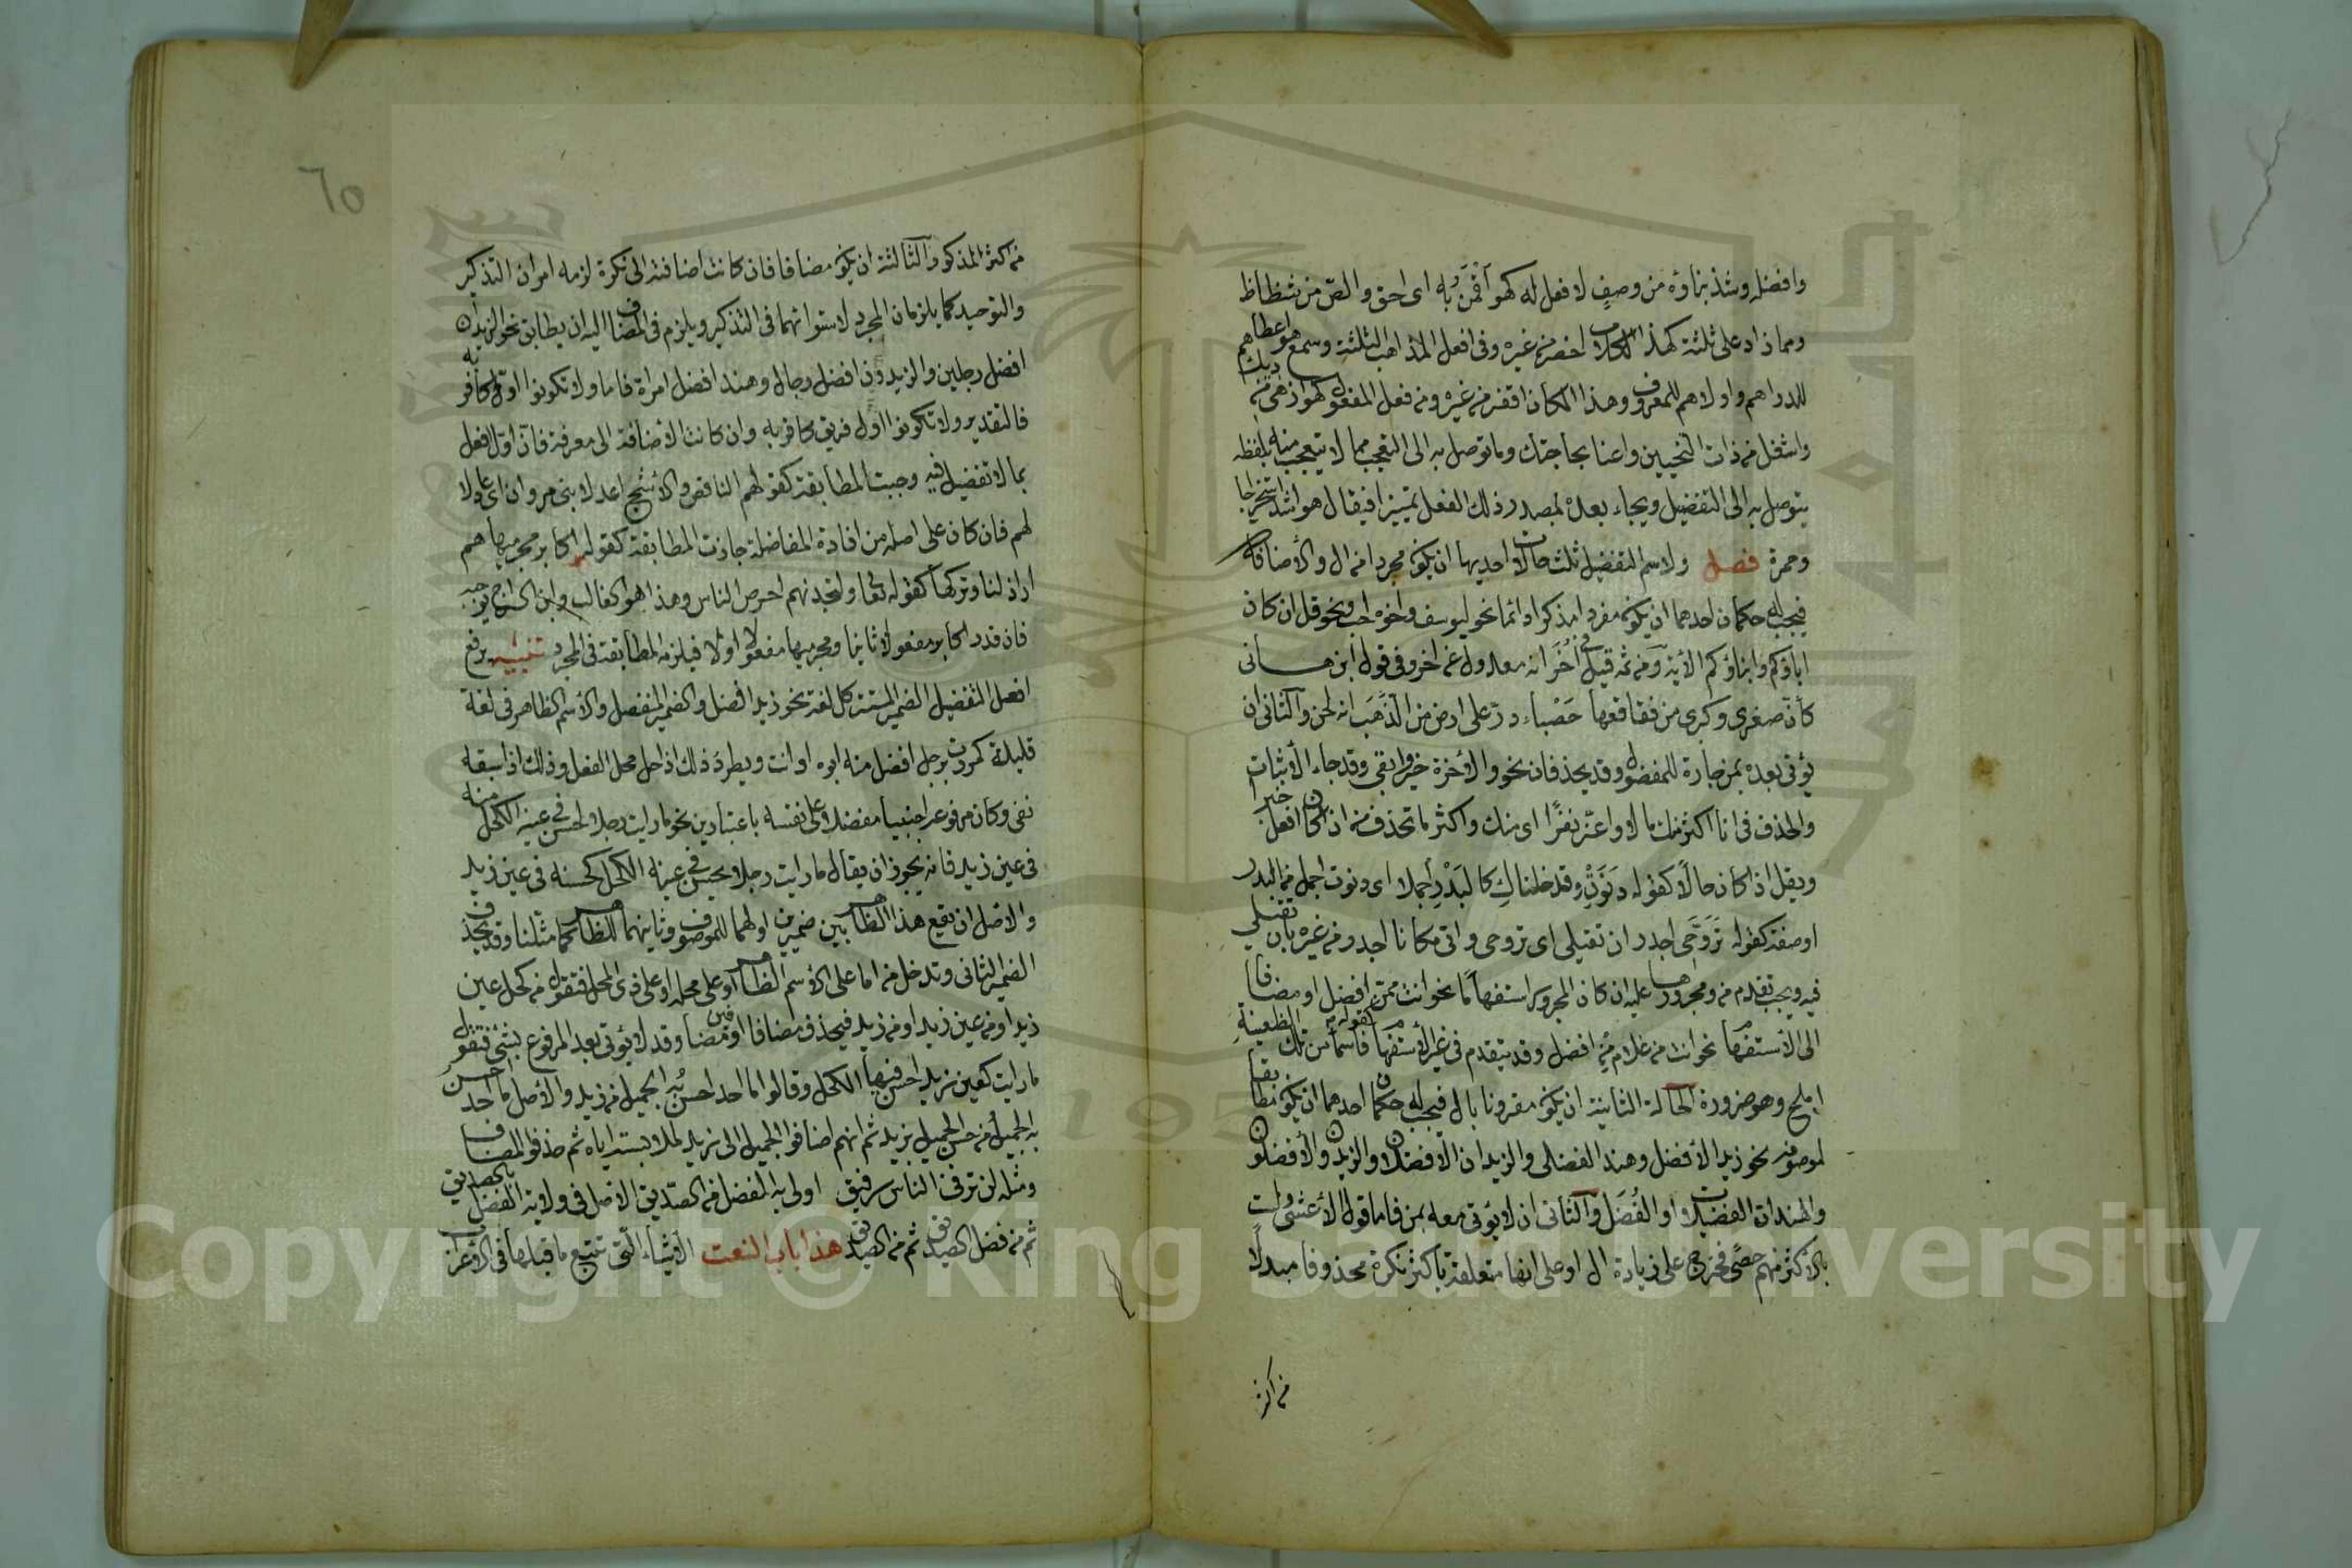 وافضل وشذ بناوه من وصفٍ لا فعل له كهو أقمن به اى احق والصّ من شظاظ
ومما زاد على ثلثة كهذا الكلام اخصر من غيره وفى افعل المذاهب الثلثة وسمع هو اعطاهم
للدراهم واولاهم للمعروف وهذا المكان اقفر من غيره ومن فعل المفعول كهو ازهى من ديك
واشغل من ذات النحيين واعنا بحاجتك وما توصل به الى التعجب مما لا يتعجب منه بلفظه
يتوصل به الى التفضيل ويجاء بعده بمصدر ذلك الفعل تمييزا فيقال هو اشد استخراجا
وحمرة فصل ولاسم التفضيل ثلث حالات احديها ان يكون مجردا من ال والأضافة
فيجب له حكمان احدهما ان يكون مفردا مذكرا دائما نحو ليوسف واخوه احب ونحو قل ان كان
اباؤكم وابناؤكم الأية ومن ثمه قيل فى أُخَر انه معدول عن اخر وفى قول ابن هانى
كأنّ صغرى وكبرى من فقاقعها حَصْباء درّ على ارض من الذّهَب انه لحن والثانى ان
يؤتى بعده بمن جارة للمفضول وقد يحذفان نحو والأخرة خير وابقى وقد جاء الأثبات
والحذف فى انا اكثر منك مالا واعزّ نفرًا اى منك واكثر ما تحذف من اذا كان افعل خبرا
ويقل اذا كان حالًا كقوله دَنَوْتِ وقد خلناكِ كالبَدْرِ أجملا اى دنوت اجمل من البدر
اوصفة كقوله تَرَوَّحى اجدر ان تقيلى اى تروحى واتى مكانا اجدر من غيره بان تقيلي
فيه ويجب تقدم من ومجرورها عليه ان كان المجرور استفهامًا نحو انت ممّن افضل او مضافا
الى الأستفهام نحو انت من غلام مَنْ افضل وقد يتقدم فى غير الأستفهام كقوله فاسماء من تلك الظعينةِ
املح وهو ضرورة الحالة الثانية ان يكون مقرونا بال فيجب له حكمان احدهما ان يكون مطابقا
لموصوفه نحو زيد الأفضل وهند الفضلى والزيدان الأفضلان والزيدون والأفضلون
والهندات الفضليات او الفُضَل والثانى ان لا يؤتى معه بمن فاما قول الأعشى ولست
بالاكثر منهم حصًى فخرج على زيادة ال او على انها متعلقة بأكثر نكرة محذوفا مبدلًا
من اكثر
٦٥
من اكثر المذكور والثالثة ان يكون مضافا فان كانت اضافته الى نكرة لزمه امران التذكير
والتوحيد كما يلزمان المجرد لاستوائهما فى التذكير ويلزم فى المضاف اليه ان يطابق نحو الزيدان
افضل رجلين والزيدون افضل رجال وهند افضل امراة فاما ولا تكونوا اوّل كافر به
فالتقدير ولا تكونوا اول فريق كافر به وان كانت الأضافة الى معرفة فان اوّل افعل
بما لا تفضيل فيه وجبت المطابقة كقولهم الناقص والأشج اعدلا بنى مروان اى عادلا
لهم فان كان على اصله من افادة المفاضلة جازت المطابقة كقوله اكابر مجرميها هم
اراذلنا وتركها كقوله تعا ولتجدنهم احرص الناس وهذا هو الغالب وابن السراج يوجبه
فان قدر اكابر مفعولا ثانيا ومجرميها مفعولا اولا فيلزمه المطابقة فى المجرد تنبيه يرفع
افعل التفضيل الضمير المستتر كل لغة نحو زيد افضل والضمير المنفصل والأسم الظاهر فى لغة
قليلة كمررت برجل افضل منه ابوه او انت ويطرد ذلك اذا حل محل الفعل وذلك اذا سبقه
نفى وكان مرفوعه اجنبيا مفضلا على نفسه باعتبارين نحو ما رايت رجلا احسن فى عينه الكحل منه
فى عين زيد فانه يجوز ان يقال ما رايت رجلا يحسن فى عينه الكحل كحسنه فى عين زيد
والاصل ان يقع هذا الظاهر بين ضميرين اولهما للموصوف وثانيهما للظاهر كما مثلنا وقد يحذف
الضمير الثانى وتدخل من اما على الأسم الظاهر او على محله او على ذى المحل فتقول من كحل عين
زيد او من عين زيد او من زيد فيحذف مضافا او مضافين وقد لا يؤتى بعد المرفوع بشئ فتقول
ما رايت كعين زيد احسن فيها الكحل وقالوا ما احد احسن به الجميل من زيد والأصل ما احد احسن
به الجميل من حسن الجميل بزيد ثم انهم اضافوا الجميل الى زيد لملابسته اياه ثم حذفوا المضاف
ومثله لن ترى فى الناس رفيق اولى به الفضل من الصدّيق الاصل فى ولاية الفضل بالصديق
ثم من فضل الصديق ثم من الصديق هذا باب النعت الأشياء التى تتبع ما قبلها فى الأعراب
Copyright © King Saud University